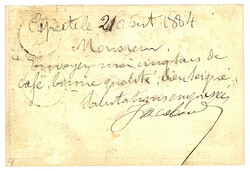 Papeete le 21 août 1884
Monsieur,
Envoyez moi cinq sacs de
café, bonne qualité, bien
Salutations empressées